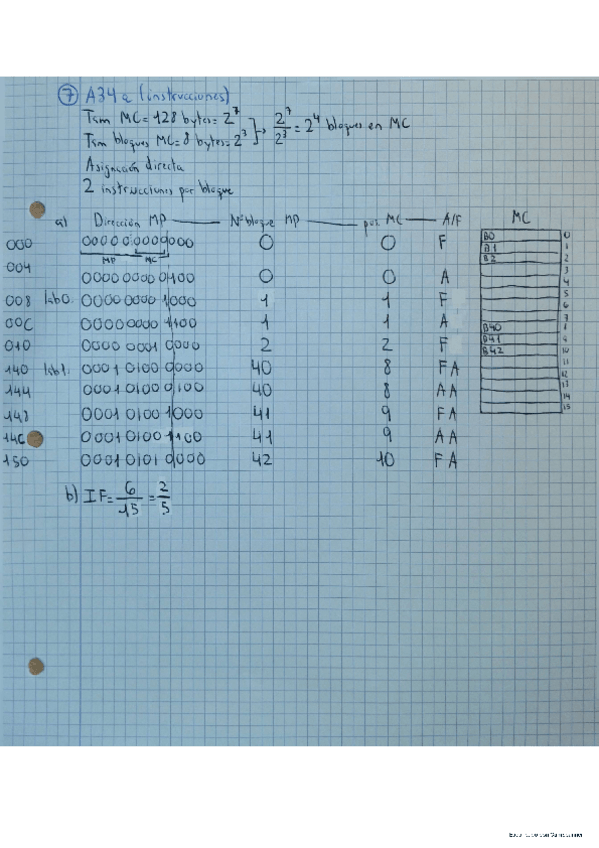 7 A34 a (instrucciones)
Tam MC = 128 bytes = 2^7
Tam bloques MC = 8 bytes = 2^3
2^7 / 2^3 = 2^4 bloques en MC
Asignación directa
2 instrucciones por bloque
a) Dirección MP Nº bloque MP pos MC A/F MC
000 00000 0000 000 0 0 F
MP MC
004 0000 0000 0100 0 0 A
008 lab0. 0000 0000 1000 1 1 F
00C 0000 0000 1100 1 1 A
010 0000 0001 0000 2 2 F
140 lab1. 0001 0100 0000 40 8 F A
144 0001 0100 0100 40 8 A A
148 0001 0100 1000 41 9 F A
14C 0001 0100 1100 41 9 A A
150 0001 0101 0000 42 10 F A
B0 0
B1 1
B2 2
3
4
5
6
7
B40 8
B41 9
B42 10
11
12
13
14
15
b) IF = 6/15 = 2/5